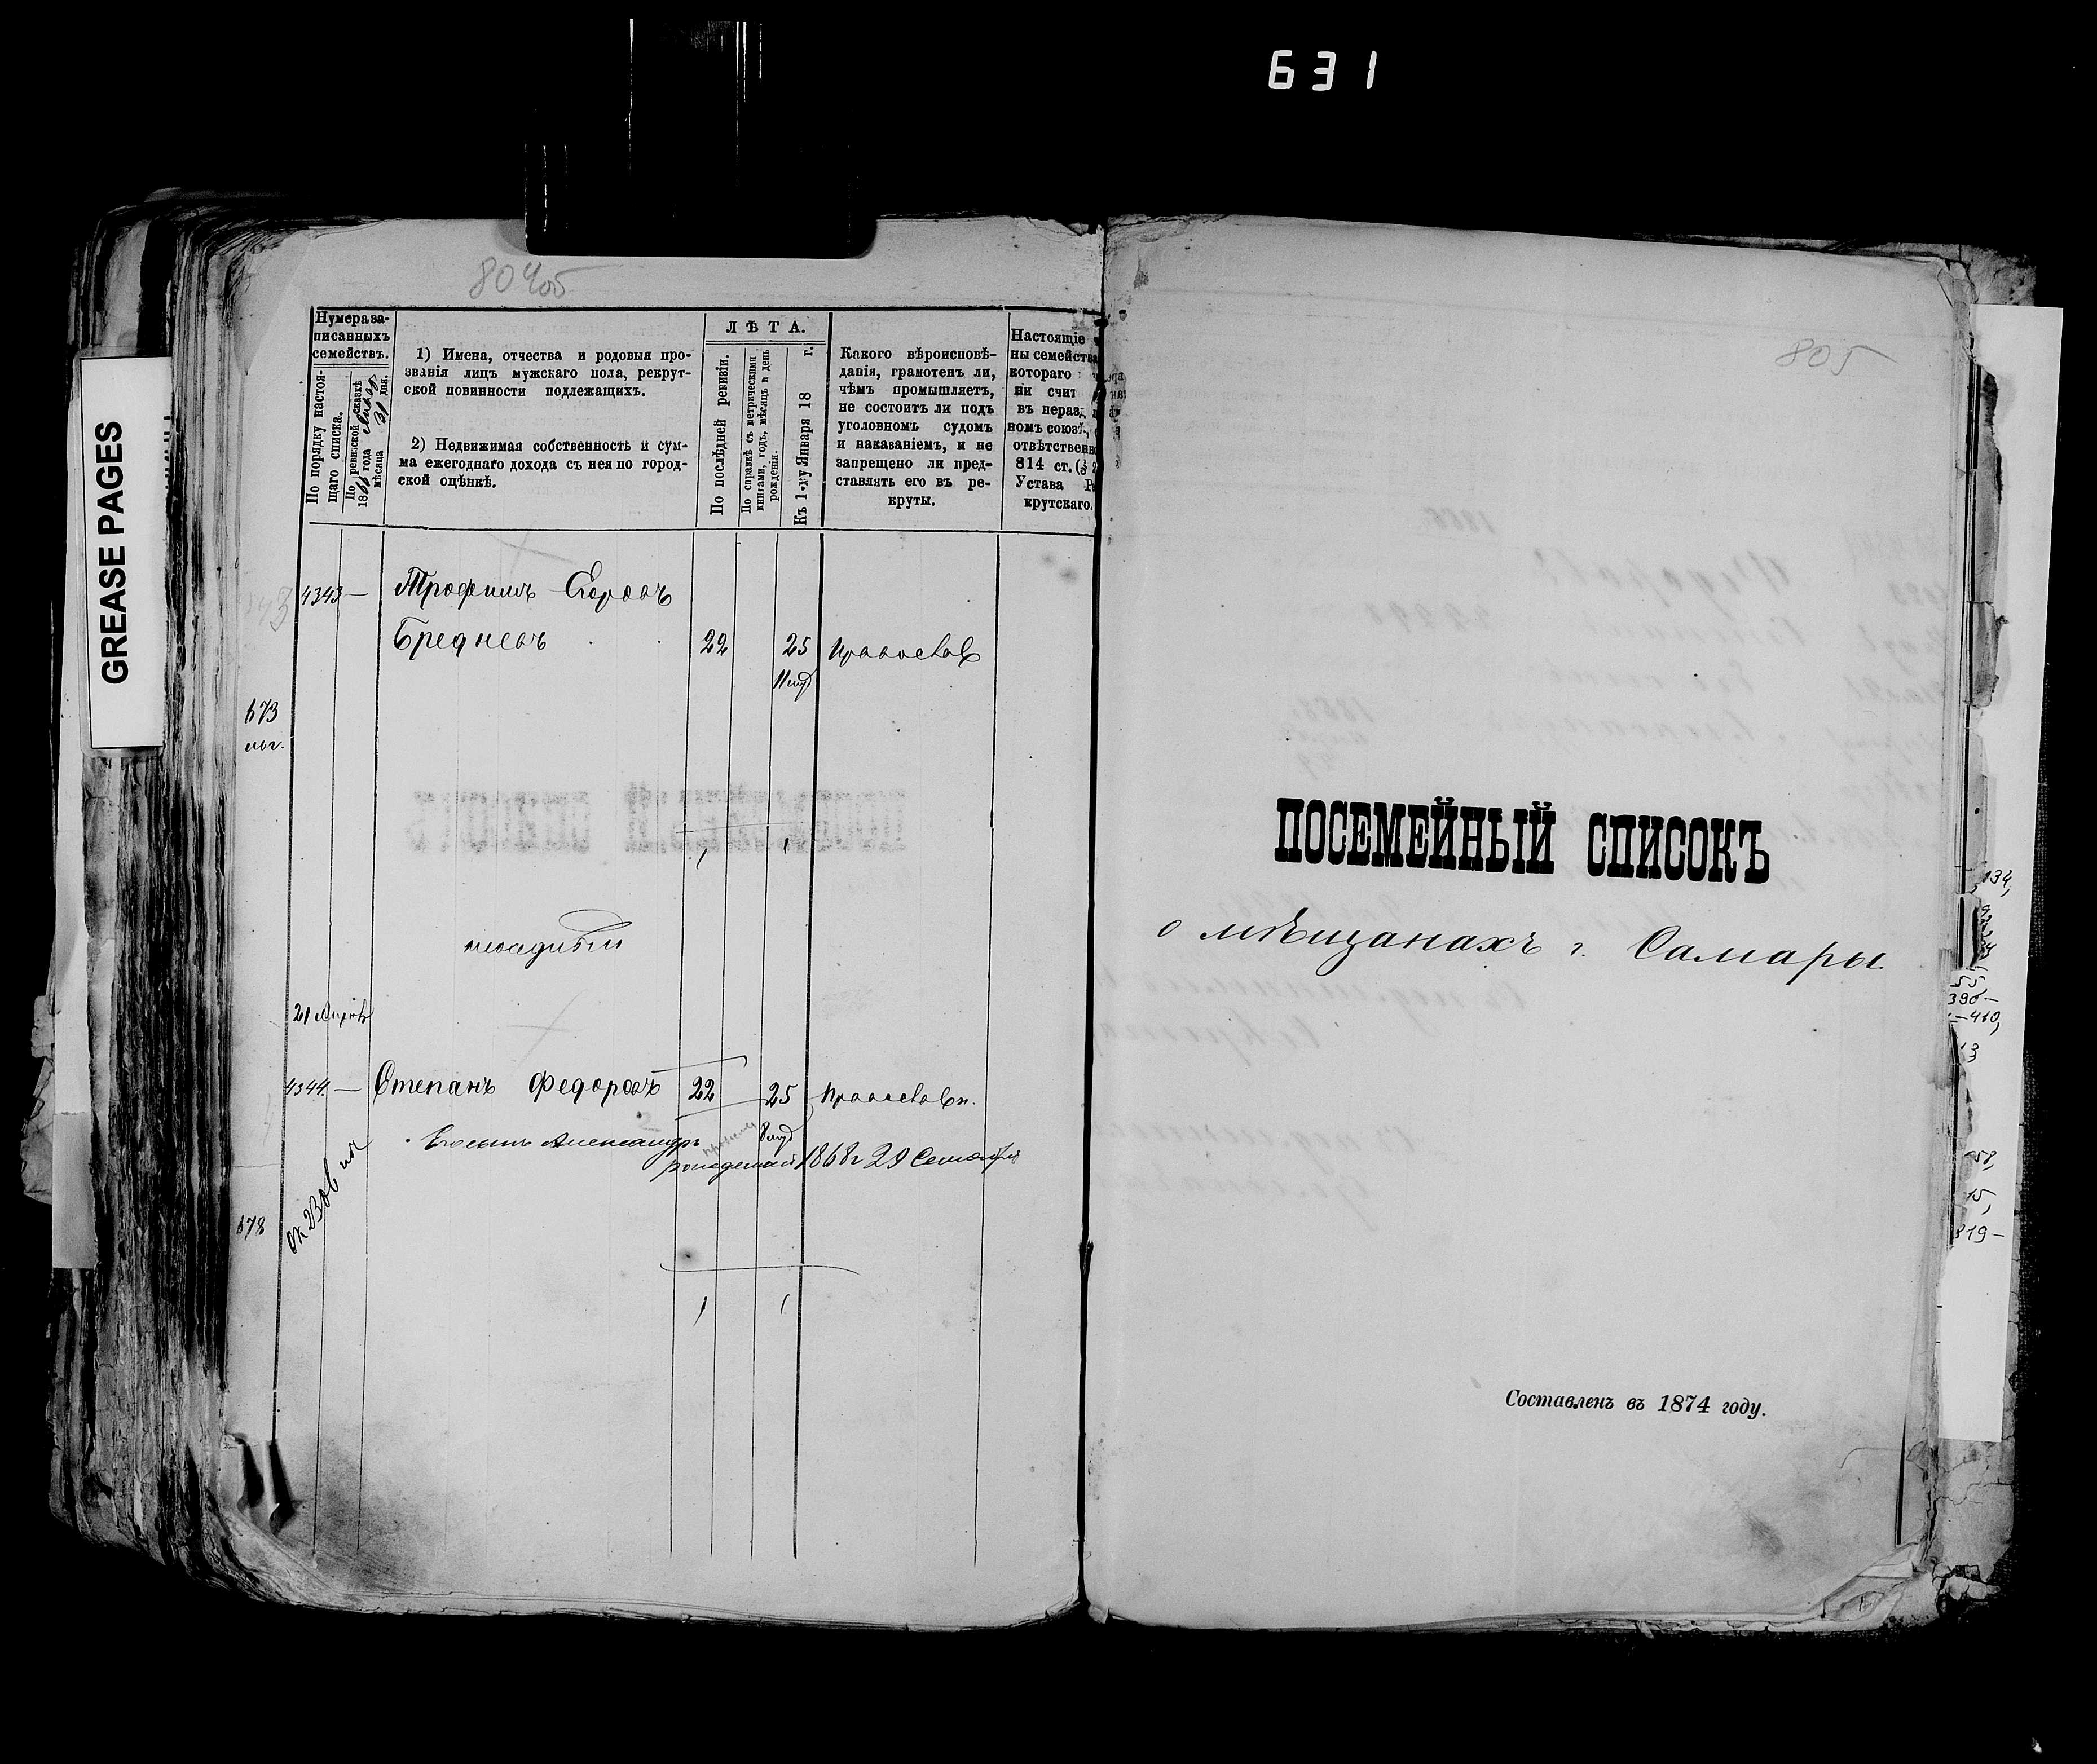 631
GREASE PAGES
804об
Нумера за-
писанныхъ
семействъ.
По порядку настоя-
щаго списка.
По ревизской сказкѣ
18 года
мѣсяца дня.
1) Имена, отчества и родовыя про-
званія лицъ мужскаго пола, рекрут-
ской повинности подлежащихъ.
2) Недвижимая собственность и сум-
ма ежегоднаго дохода съ нея по город-
ской оцѣнкѣ.
ЛѢТА.
По послѣдней ревизіи.
По справкѣ съ метрическими
книгами, годъ, мѣсяцъ и день
рожденія.
Къ 1-му Января 18 г.
Какого вѣроисповѣ-
данія, грамотенъ ли,
чѣмъ промышляетъ,
не состоитъ ли подъ
уголовномъ судомъ
и наказаніемъ, и не
запрещено ли пред-
ставлять его въ ре-
круты.
Настоящіе
ны семейства
котораго
ни счит
въ нераз
номъ союзѣ,
отвѣтственн
814 ст.
Устава Ре
крутскаго.
4343 — Трофимъ Егоровъ
Бредневъ 22 25 Православ
673
1 1
21 Апрѣл
4344 — Степанъ Федоровъ 22 25 Православн.
Егосынъ Александръ
рожденный 1868 г 29 Сентября
678
1 1
805
ПОСЕМЕЙНЫЙ СПИСОКЪ
о мѣщанахъ г. Самары.
Составленъ въ 1874 году.
134,
55,
390—
—410,
13
58,
15,
319—